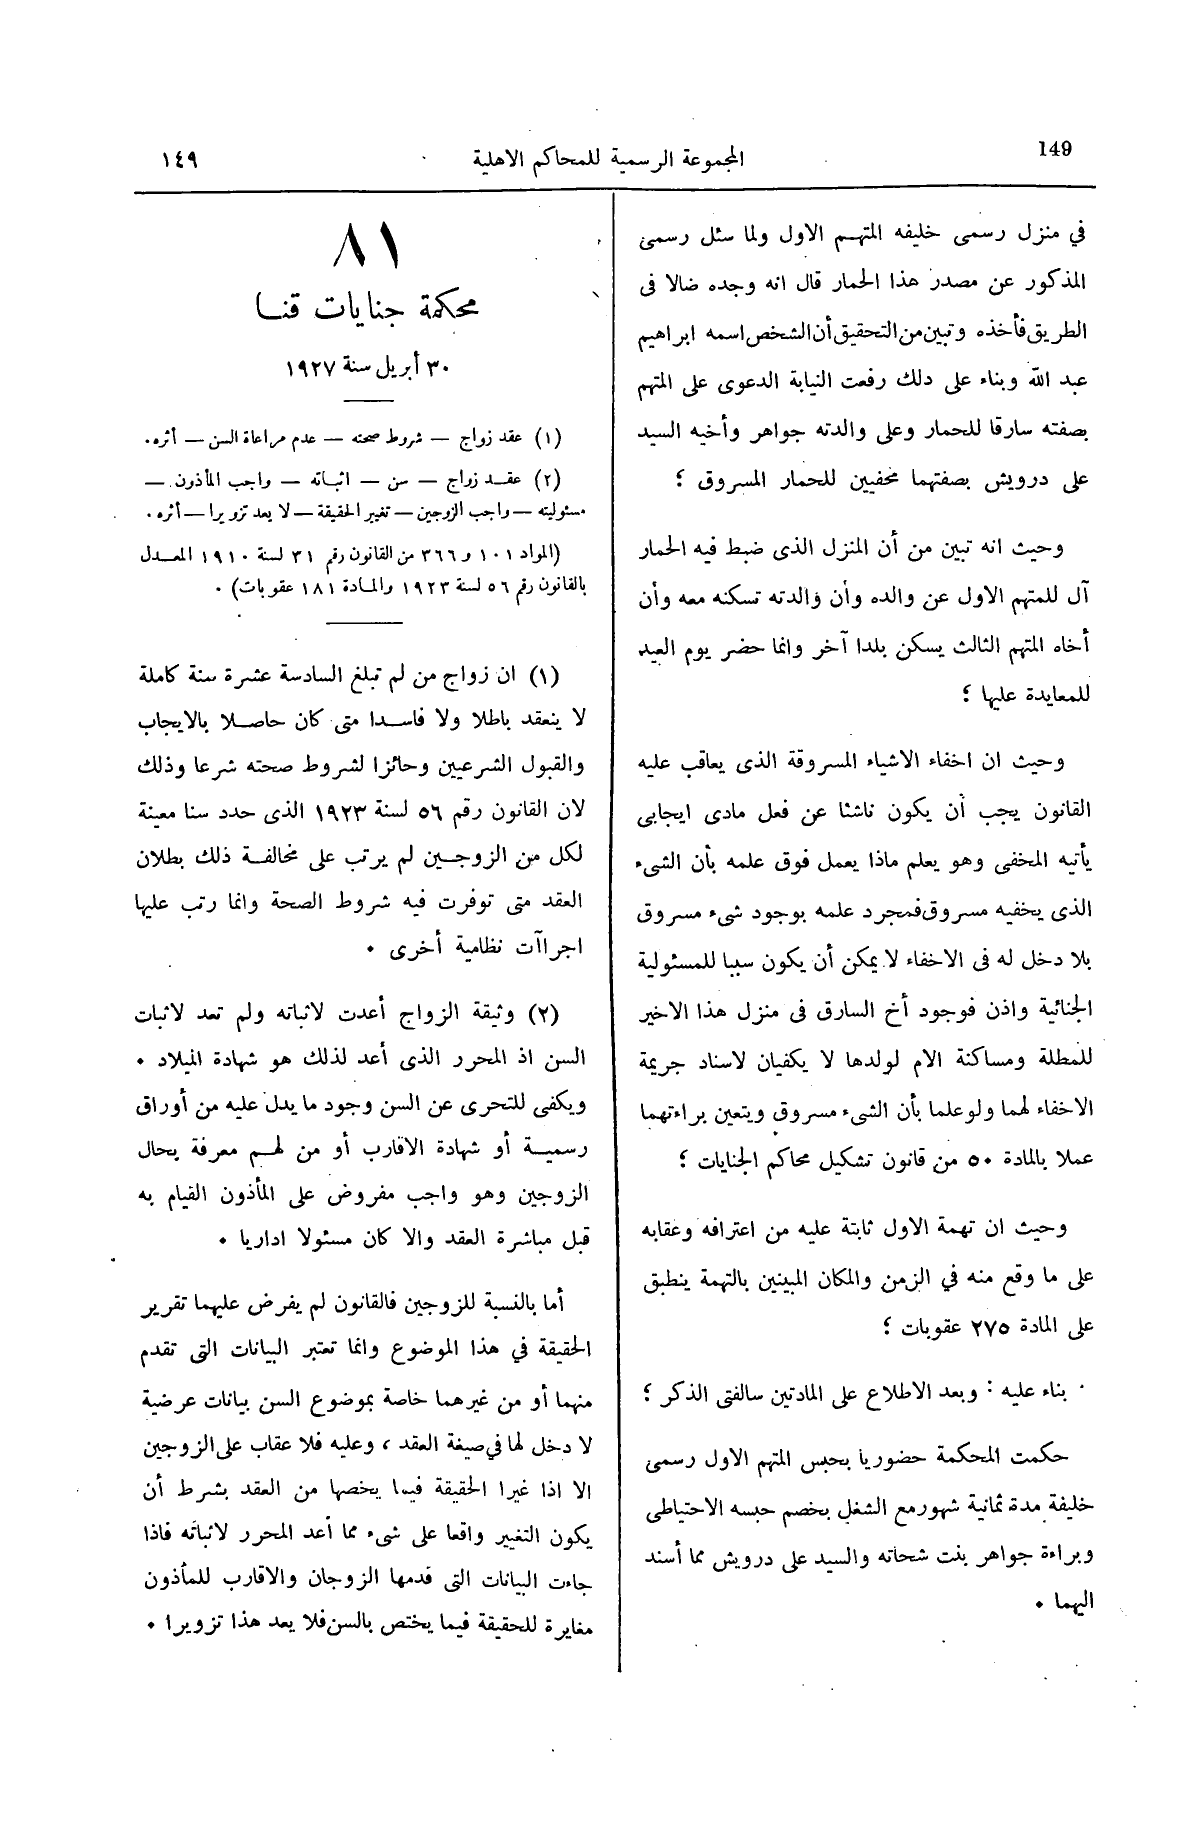 149
المجموعة الرسمية للمحاكم الاهلية
١٤٩
في منزل رسمى خليفه المتهم الاول ولما سئل رسمى
المذكور عن مصدر هذا الحمار قال انه وجده ضالا فى
الطريق فأخذه وتبين من التحقيق أن الشخص اسمه ابراهيم
عبد الله وبناء على ذلك رفعت النيابة الدعوى على المتهم
بصفته سارقا للحمار وعلى والدته جواهر وأخيه السيد
على درويش بصفتهما مخفيين للحمار المسروق ؛
وحيث انه تبين من أن المنزل الذى ضبط فيه الحمار
آل للمتهم الاول عن والده وأن والدته تسكنه معه وأن
أخاه المتهم الثالث يسكن بلدا آخر وانما حضر يوم العيد
للمعايدة عليها ؛
وحيث ان اخفاء الاشياء المسروقة الذى يعاقب عليه
القانون يجب أن يكون ناشئا عن فعل مادى ايجابى
يأتيه المخفى وهو يعلم ماذا يعمل فوق علمه بأن الشىء
الذى يخفيه مسروق فمجرد علمه بوجود شىء مسروق
بلا دخل له فى الاخفاء لا يمكن أن يكون سببا للمسئولية
الجنائية واذن فوجود أخ السارق فى منزل هذا الاخير
للمطلة ومساكنة الام لولدها لا يكفيان لاسناد جريمة
الاخفاء لهما ولو علما بأن الشىء مسروق ويتعين براءتهما
عملا بالمادة ٥٠ من قانون تشكيل محاكم الجنايات ؛
وحيث ان تهمة الاول ثابتة عليه من اعترافه وعقابه
على ما وقع منه في الزمن والمكان المبينين بالتهمة ينطبق
على المادة ٢٧٥ عقوبات ؛
بناء عليه : وبعد الاطلاع على المادتين سالفتى الذكر ؛
حكمت المحكمة حضوريا بحبس المتهم الاول رسمى
خليفة مدة ثمانية شهور مع الشغل بخصم حبسه الاحتياطى
وبراءة جواهر بنت شحاته والسيد على درويش مما أسند
اليهما ٠
٨١
محكمة جنايات قنا
٣٠ أبريل سنة ١٩٢٧
(١) عقد زواج — شروط صحته — عدم مراعاة السن — أثره.
(٢) عقد زواج — سن — اثباته — واجب المأذون —
مسئوليته — واجب الزوجين — تغيير الحقيقة — لا يعد تزويرا — أثره.
(المواد ١٠١ و ٣٦٦ من القانون رقم ٣١ لسنة ١٩١٠ المعدل
بالقانون رقم ٥٦ لسنة ١٩٢٣ والمادة ١٨١ عقوبات) .
(١) ان زواج من لم تبلغ السادسة عشرة سنة كاملة
لا ينعقد باطلا ولا فاسدا متى كان حاصلا بالايجاب
والقبول الشرعيين وحائزا لشروط صحته شرعا وذلك
لان القانون رقم ٥٦ لسنة ١٩٢٣ الذى حدد سنا معينة
لكل من الزوجين لم يرتب على مخالفة ذلك بطلان
العقد متى توفرت فيه شروط الصحة وانما رتب عليها
اجراآت نظامية أخرى ٠
(٢) وثيقة الزواج أعدت لاثباته ولم تعد لاثبات
السن اذ المحرر الذى أعد لذلك هو شهادة الميلاد ٠
ويكفى للتحرى عن السن وجود ما يدل عليه من أوراق
رسمية أو شهادة الاقارب أو من لهم معرفة بحال
الزوجين وهو واجب مفروض على المأذون القيام به
قبل مباشرة العقد والا كان مسئولا اداريا ٠
أما بالنسبة للزوجين فالقانون لم يفرض عليهما تقرير
الحقيقة في هذا الموضوع وانما تعتبر البيانات التى تقدم
منهما أو من غيرهما خاصة بموضوع السن بيانات عرضية
لا دخل لها في صيغة العقد ، وعليه فلا عقاب على الزوجين
الا اذا غيرا الحقيقة فيما يخصها من العقد بشرط أن
يكون التغيير واقعا على شىء مما أعد المحرر لاثباته فاذا
جاءت البيانات التى قدمها الزوجان والاقارب للمأذون
مغايرة للحقيقة فيما يختص بالسن فلا يعد هذا تزويرا ٠